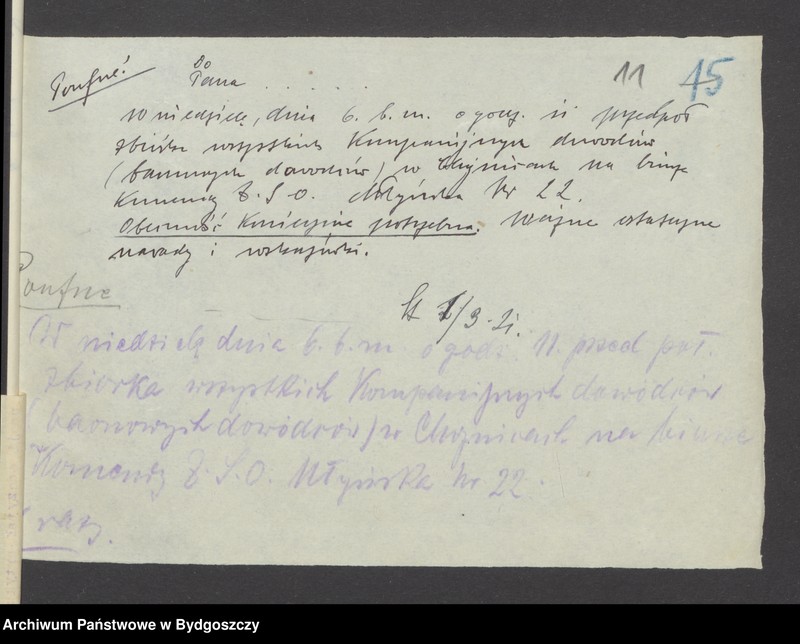 Poufne!
Do
Pana . . . . .
11
15
W niedzielę, dnia 6. b. m. o godz. 11 przedpoł
zbiórka wszystkich Kompanijnych dowódców
(baonowych dowódców) w Chojnicach na biurze
Komendy Z. S. O. Młyńska Nr 22.
Obecność koniecznie potrzebna. Ważne ostateczne
narady i wskazówki.
Poufne
/3. 21.
W niedzielę dnia 6. b. m. o godz. 11. przed poł.
zbiorka wszystkich Kompanijnych dowódców
(baonowych dowódców) w Chojnicach na biurze
Komendy Z. S. O. Młyńska Nr 22.
Archiwum Państwowe w Bydgoszczy